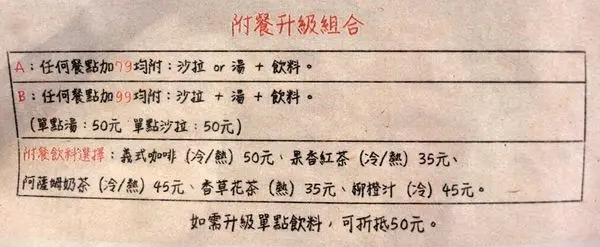 附餐升級組合
A：任何餐點加79均附：沙拉 or 湯 + 飲料。
B：任何餐點加99均附：沙拉 + 湯 + 飲料。
(單點湯：50元 單點沙拉：50元)
附餐飲料選擇：義式咖啡 (冷/熱) 50元、果香紅茶 (冷/熱) 35元、
阿薩姆奶茶 (冷/熱) 45元、香草花茶 (熱) 35元、柳橙汁 (冷) 45元。
如需升級單點飲料，可折抵50元。